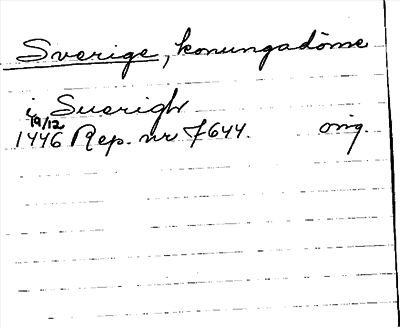 Sverige, konungadöme
i Suerigh
19/12
1446 Rep. nr 7644. orig.